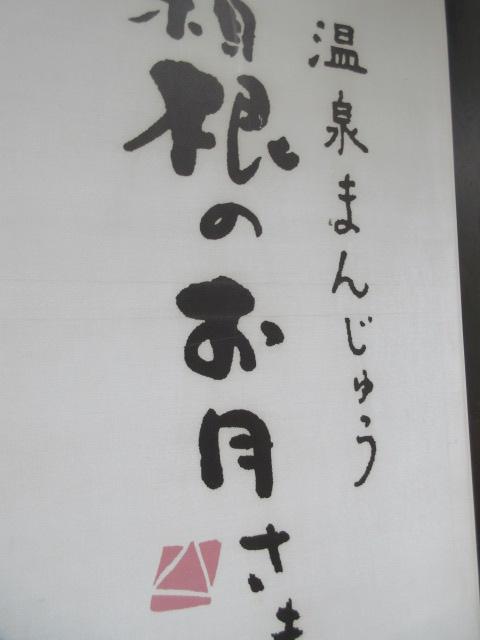 温泉まんじゅう
箱根のお月さま